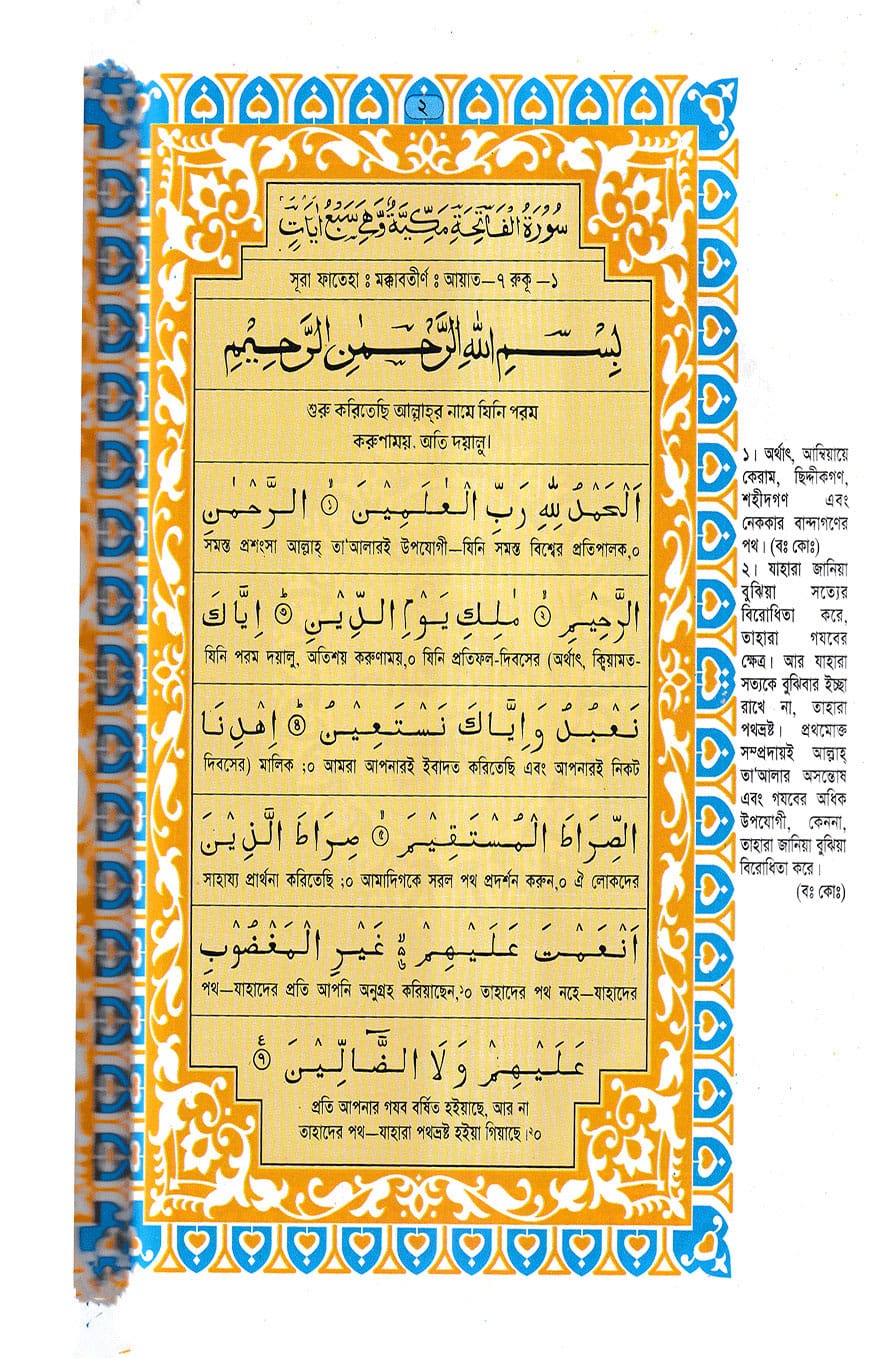 ২
سُوْرَةُ الْفَاتِحَةِ مَكِّيَّةٌ وَّهِىَ سَبْعُ اٰيَاتٍ
সূরা ফাতেহা ঃ মক্কাবতীর্ণ ঃ আয়াত—৭ রুকূ —১
بِسْمِ اللهِ الرَّحْمٰنِ الرَّحِيْمِ
শুরু করিতেছি আল্লাহ্‌র নামে যিনি পরম
করুণাময়. অতি দয়ালু।
اَلْحَمْدُ لِلّٰهِ رَبِّ الْعٰلَمِيْنَ ۙ﴿۱﴾ الرَّحْمٰنِ
সমস্ত প্রশংসা আল্লাহ্ তা‘আলারই উপযোগী—যিনি সমস্ত বিশ্বের প্রতিপালক,০
الرَّحِيْمِ ۙ﴿۲﴾ مٰلِكِ يَوْمِ الدِّيْنِ ؕ﴿۳﴾ اِيَّاكَ
যিনি পরম দয়ালু, অতিশয় করুণাময়,০ যিনি প্রতিফল-দিবসের (অর্থাৎ, ক্বিয়ামত-
نَعْبُدُ وَ اِيَّاكَ نَسْتَعِيْنُ ؕ﴿۴﴾ اِهْدِنَا
দিবসের) মালিক ;০ আমরা আপনারই ইবাদত করিতেছি এবং আপনারই নিকট
الصِّرَاطَ الْمُسْتَقِيْمَ ۙ﴿۵﴾ صِرَاطَ الَّذِيْنَ
সাহায্য প্রার্থনা করিতেছি ;০ আমাদিগকে সরল পথ প্রদর্শন করুন,০ ঐ লোকদের
اَنْعَمْتَ عَلَيْهِمْ ۙ۬﴿۶﴾ غَيْرِ الْمَغْضُوْبِ
পথ—যাহাদের প্রতি আপনি অনুগ্রহ করিয়াছেন,১০ তাহাদের পথ নহে—যাহাদের
عَلَيْهِمْ وَلَا الضَّآلِّيْنَ ﴿۷﴾
প্রতি আপনার গযব বর্ষিত হইয়াছে, আর না
তাহাদের পথ—যাহারা পথভ্রষ্ট হইয়া গিয়াছে।২০
১। অর্থাৎ, আম্বিয়ায়ে
কেরাম, ছিদ্দীকগণ,
শহীদগণ এবং
নেককার বান্দাগণের
পথ। (বঃ কোঃ)
২। যাহারা জানিয়া
বুঝিয়া সত্যের
বিরোধিতা করে,
তাহারা গযবের
ক্ষেত্র। আর যাহারা
সত্যকে বুঝিবার ইচ্ছা
রাখে না, তাহারা
পথভ্রষ্ট। প্রথমোক্ত
সম্প্রদায়ই আল্লাহ্
তা‘আলার অসন্তোষ
এবং গযবের অধিক
উপযোগী, কেননা,
তাহারা জানিয়া বুঝিয়া
বিরোধিতা করে।
(বঃ কোঃ)